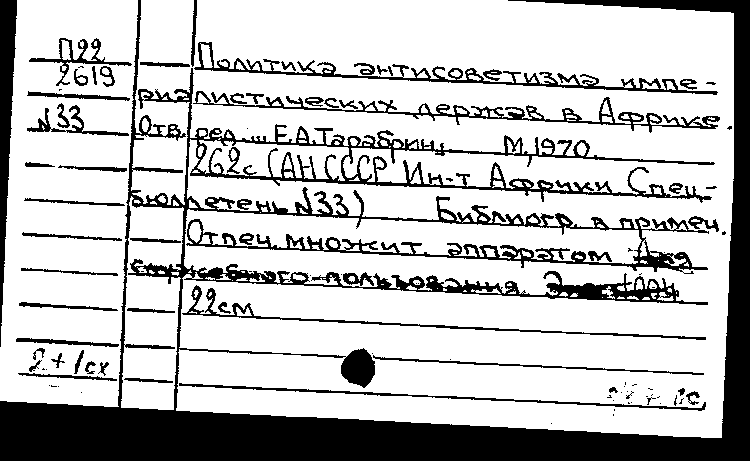 П22
2619
N33
Политика антисоветизма импе-
риалистических держав в Африке.
Отв. ред. ... Е.А.Тарабрин. М,1970.
262с (АН СССР Ин-т Африки Спец-
бюллетень N33) Библиогр. в примеч.
Отпеч. множит. аппаратом Для
служебного пользования.
22см
2+1сх